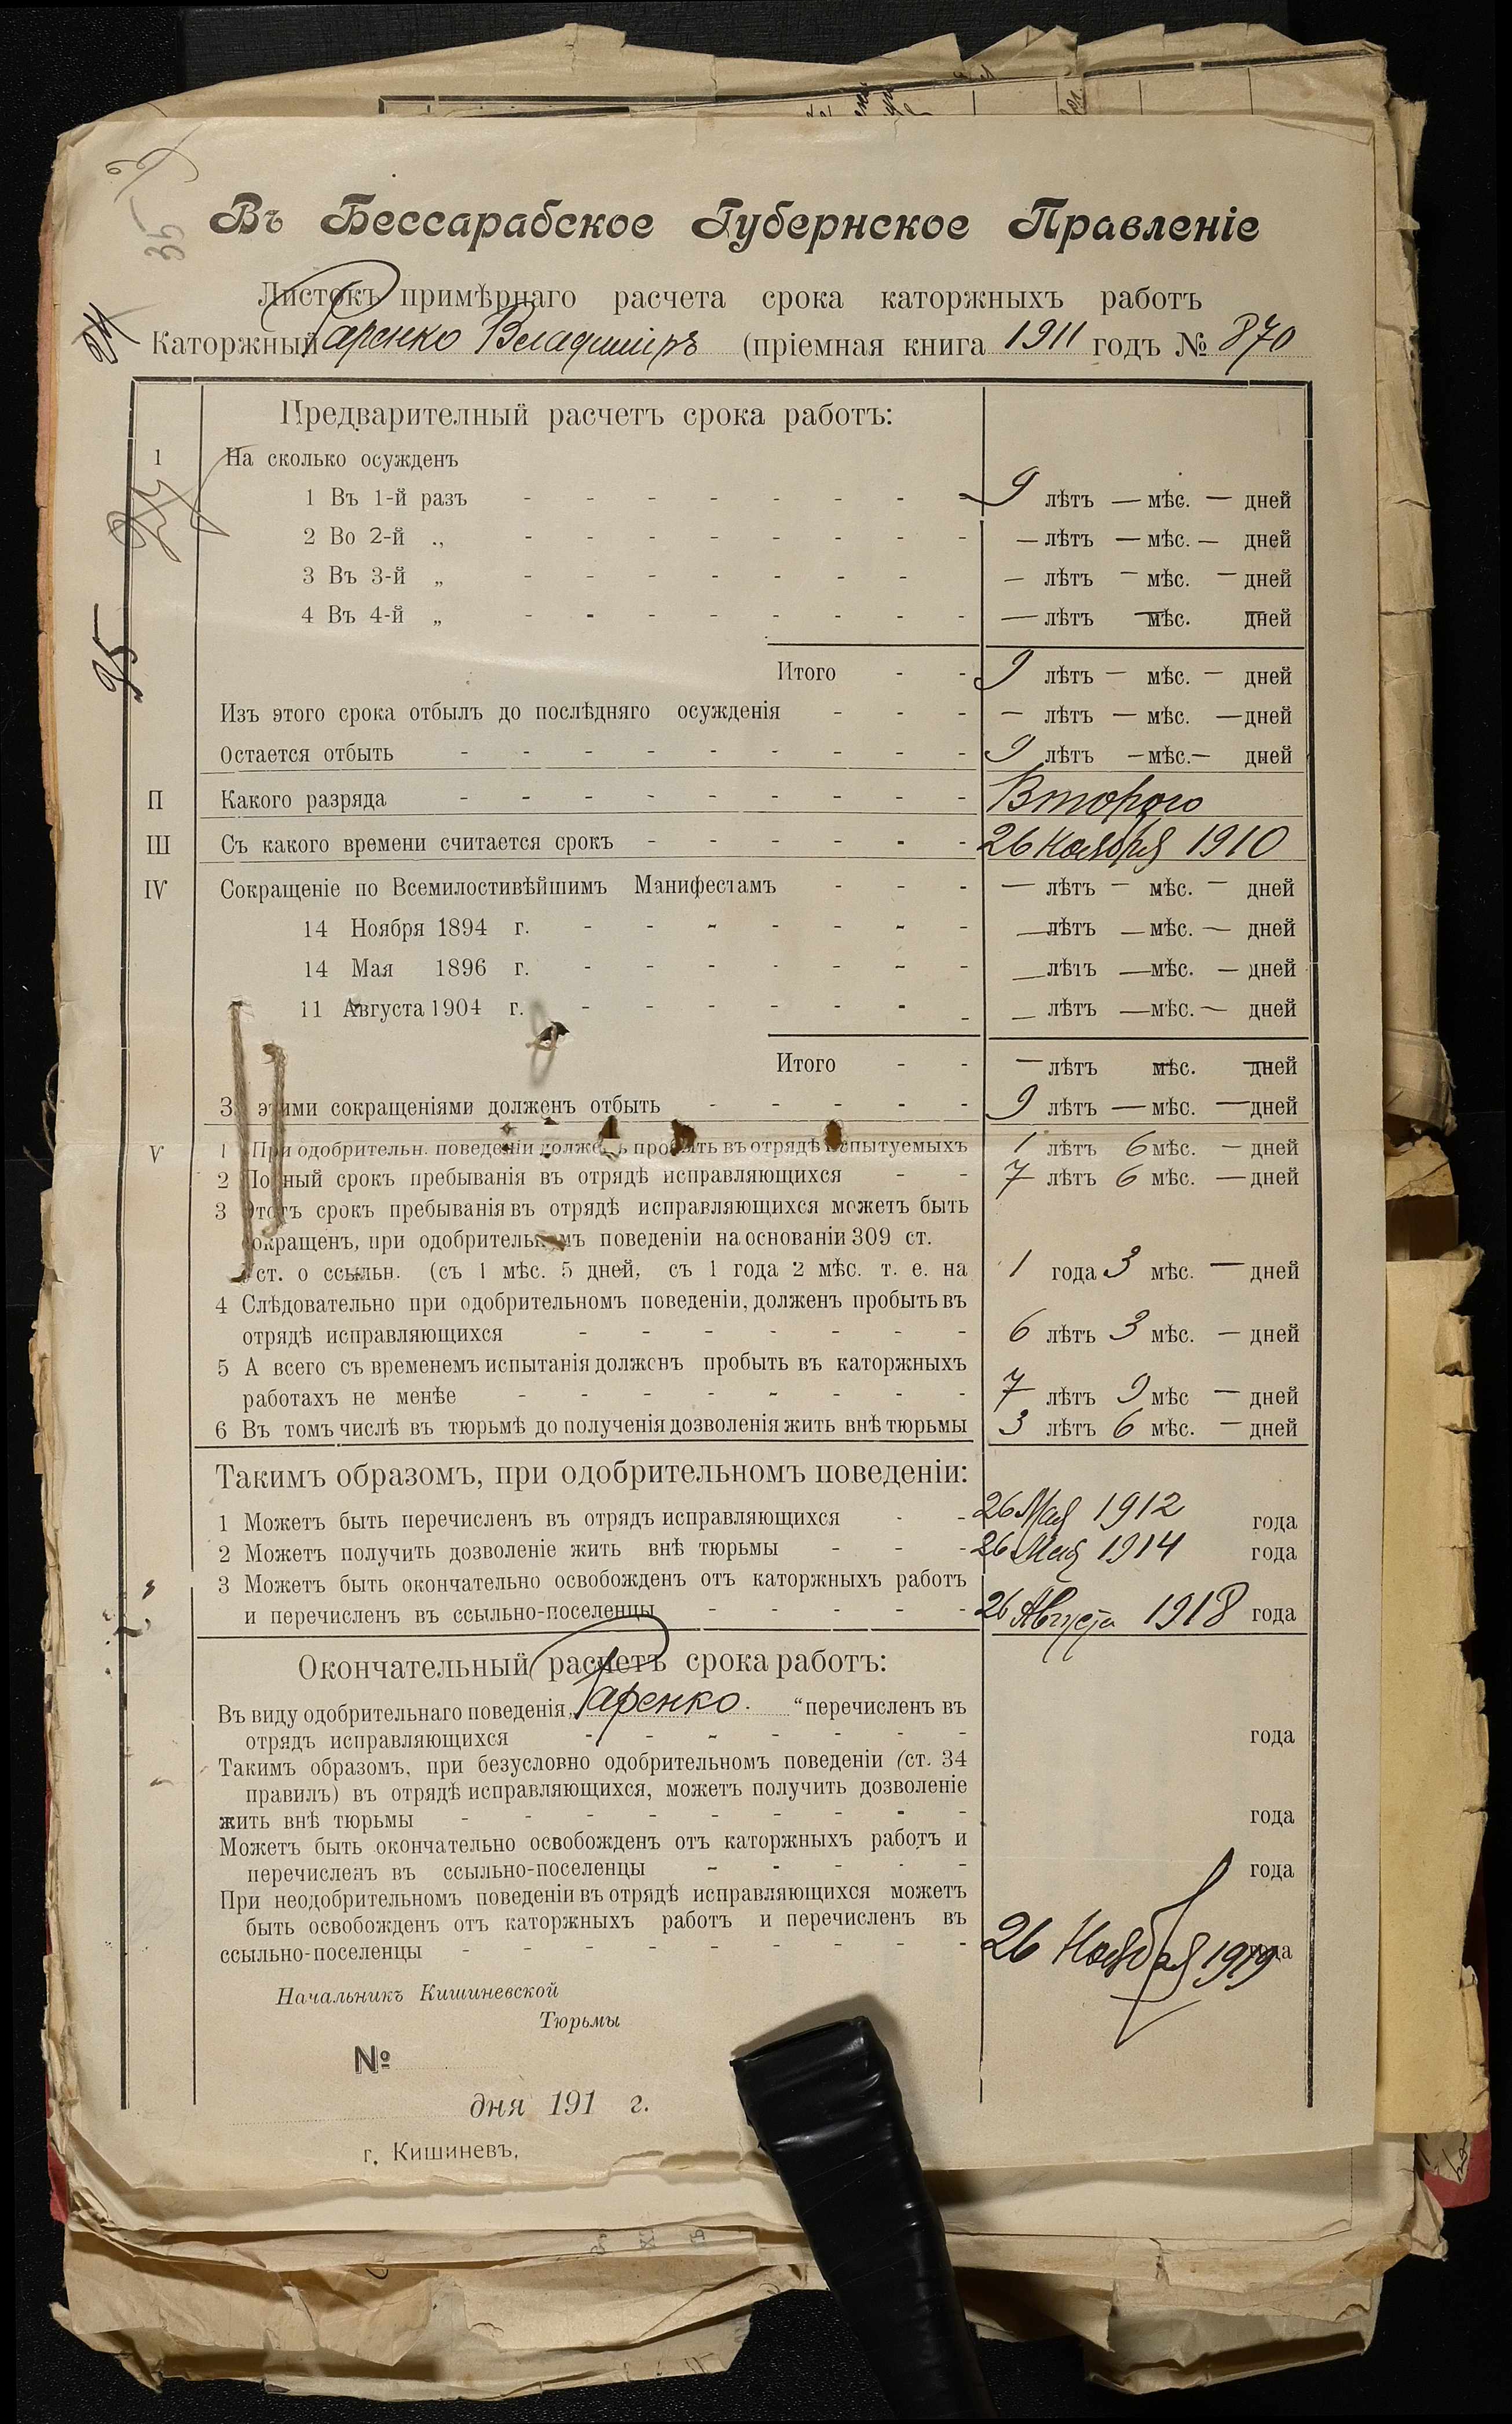 35
Въ Бессарабское Губернское Правленіе
Листокъ примѣрнаго расчета срока каторжныхъ работъ
Каторжный Гаренко Владиміръ (пріемная книга 1911 годъ № 870
Предварителный расчетъ срока работъ:
1 На сколько осужденъ
1 Въ 1-й разъ - - - - - - - - 9 лѣтъ — мѣс. — дней
2 Во 2-й „ - - - - - - - - — лѣтъ — мѣс. — дней
3 Въ 3-й „ - - - - - - - — лѣтъ — мѣс. — дней
4 Въ 4-й „ - - - - - - - - — лѣтъ — мѣс. — дней
95
Итого - - 9 лѣтъ — мѣс. — дней
Изъ этого срока отбылъ до послѣдняго осужденія - - - — лѣтъ — мѣс. — дней
Остается отбыть - - - - - - - - - 9 лѣтъ — мѣс. — дней
II Какого разряда - - - - - - - - - Второго
III Съ какого времени считается срокъ - - - - - - 26 Ноября 1910
IV Сокращеніе по Всемилостивѣйшимъ Манифестамъ - - - — лѣтъ — мѣс. — дней
14 Ноября 1894 г. - - - - - - - — лѣтъ — мѣс. — дней
14 Мая 1896 г. - - - - - - - — лѣтъ — мѣс. — дней
11 Августа 1904 г. - - - - - - - — лѣтъ — мѣс. — дней
Итого - - — лѣтъ — мѣс. — дней
За этими сокращеніями долженъ отбыть - - - - - 9 лѣтъ — мѣс. — дней
V 1 При одобрительн. поведеніи долженъ пробыть въ отрядѣ испытуемыхъ 1 лѣтъ 6 мѣс. — дней
2 Полный срокъ пребыванія въ отрядѣ исправляющихся - - 7 лѣтъ 6 мѣс. — дней
3 Этотъ срокъ пребыванія въ отрядѣ исправляющихся можетъ быть
сокращенъ, при одобрительномъ поведеніи на основаніи 309 ст.
уст. о ссыльн. (съ 1 мѣс. 5 дней, съ 1 года 2 мѣс. т. е. на 1 года 3 мѣс. — дней
4 Слѣдовательно при одобрительномъ поведеніи, долженъ пробыть въ
отрядѣ исправляющихся - - - - - - - 6 лѣтъ 3 мѣс. — дней
5 А всего съ временемъ испытанія долженъ пробыть въ каторжныхъ
работахъ не менѣе - - - - - - - - 7 лѣтъ 9 мѣс — дней
6 Въ томъ числѣ въ тюрьмѣ до полученія дозволенія жить внѣ тюрьмы 3 лѣтъ 6 мѣс. — дней
Такимъ образомъ, при одобрительномъ поведеніи:
1 Можетъ быть перечисленъ въ отрядъ исправляющихся - - 26 Мая 1912 года
2 Можетъ получить дозволеніе жить внѣ тюрьмы - - - 26 Мая 1914 года
3 Можетъ быть окончательно освобожденъ отъ каторжныхъ работъ
и перечисленъ въ ссыльно-поселенцы - - - - - 26 Августа 1918 года
Окончательный расчетъ срока работъ:
Въ виду одобрительнаго поведенія „Гаренко.“ перечисленъ въ
отрядъ исправляющихся - - - - - - - года
Такимъ образомъ, при безусловно одобрительномъ поведеніи (ст. 34
правилъ) въ отрядѣ исправляющихся, можетъ получить дозволеніе
жить внѣ тюрьмы - - - - - - - - - года
Можетъ быть окончательно освобожденъ отъ каторжныхъ работъ и
перечисленъ въ ссыльно-поселенцы - - - - - года
При неодобрительномъ поведеніи въ отрядѣ исправляющихся можетъ
быть освобожденъ отъ каторжныхъ работъ и перечисленъ въ
ссыльно-поселенцы - - - - - - - - - 26 Ноября 1919 года
Начальникъ Кишиневской
Тюрьмы
№
дня 191 г.
г. Кишиневъ,